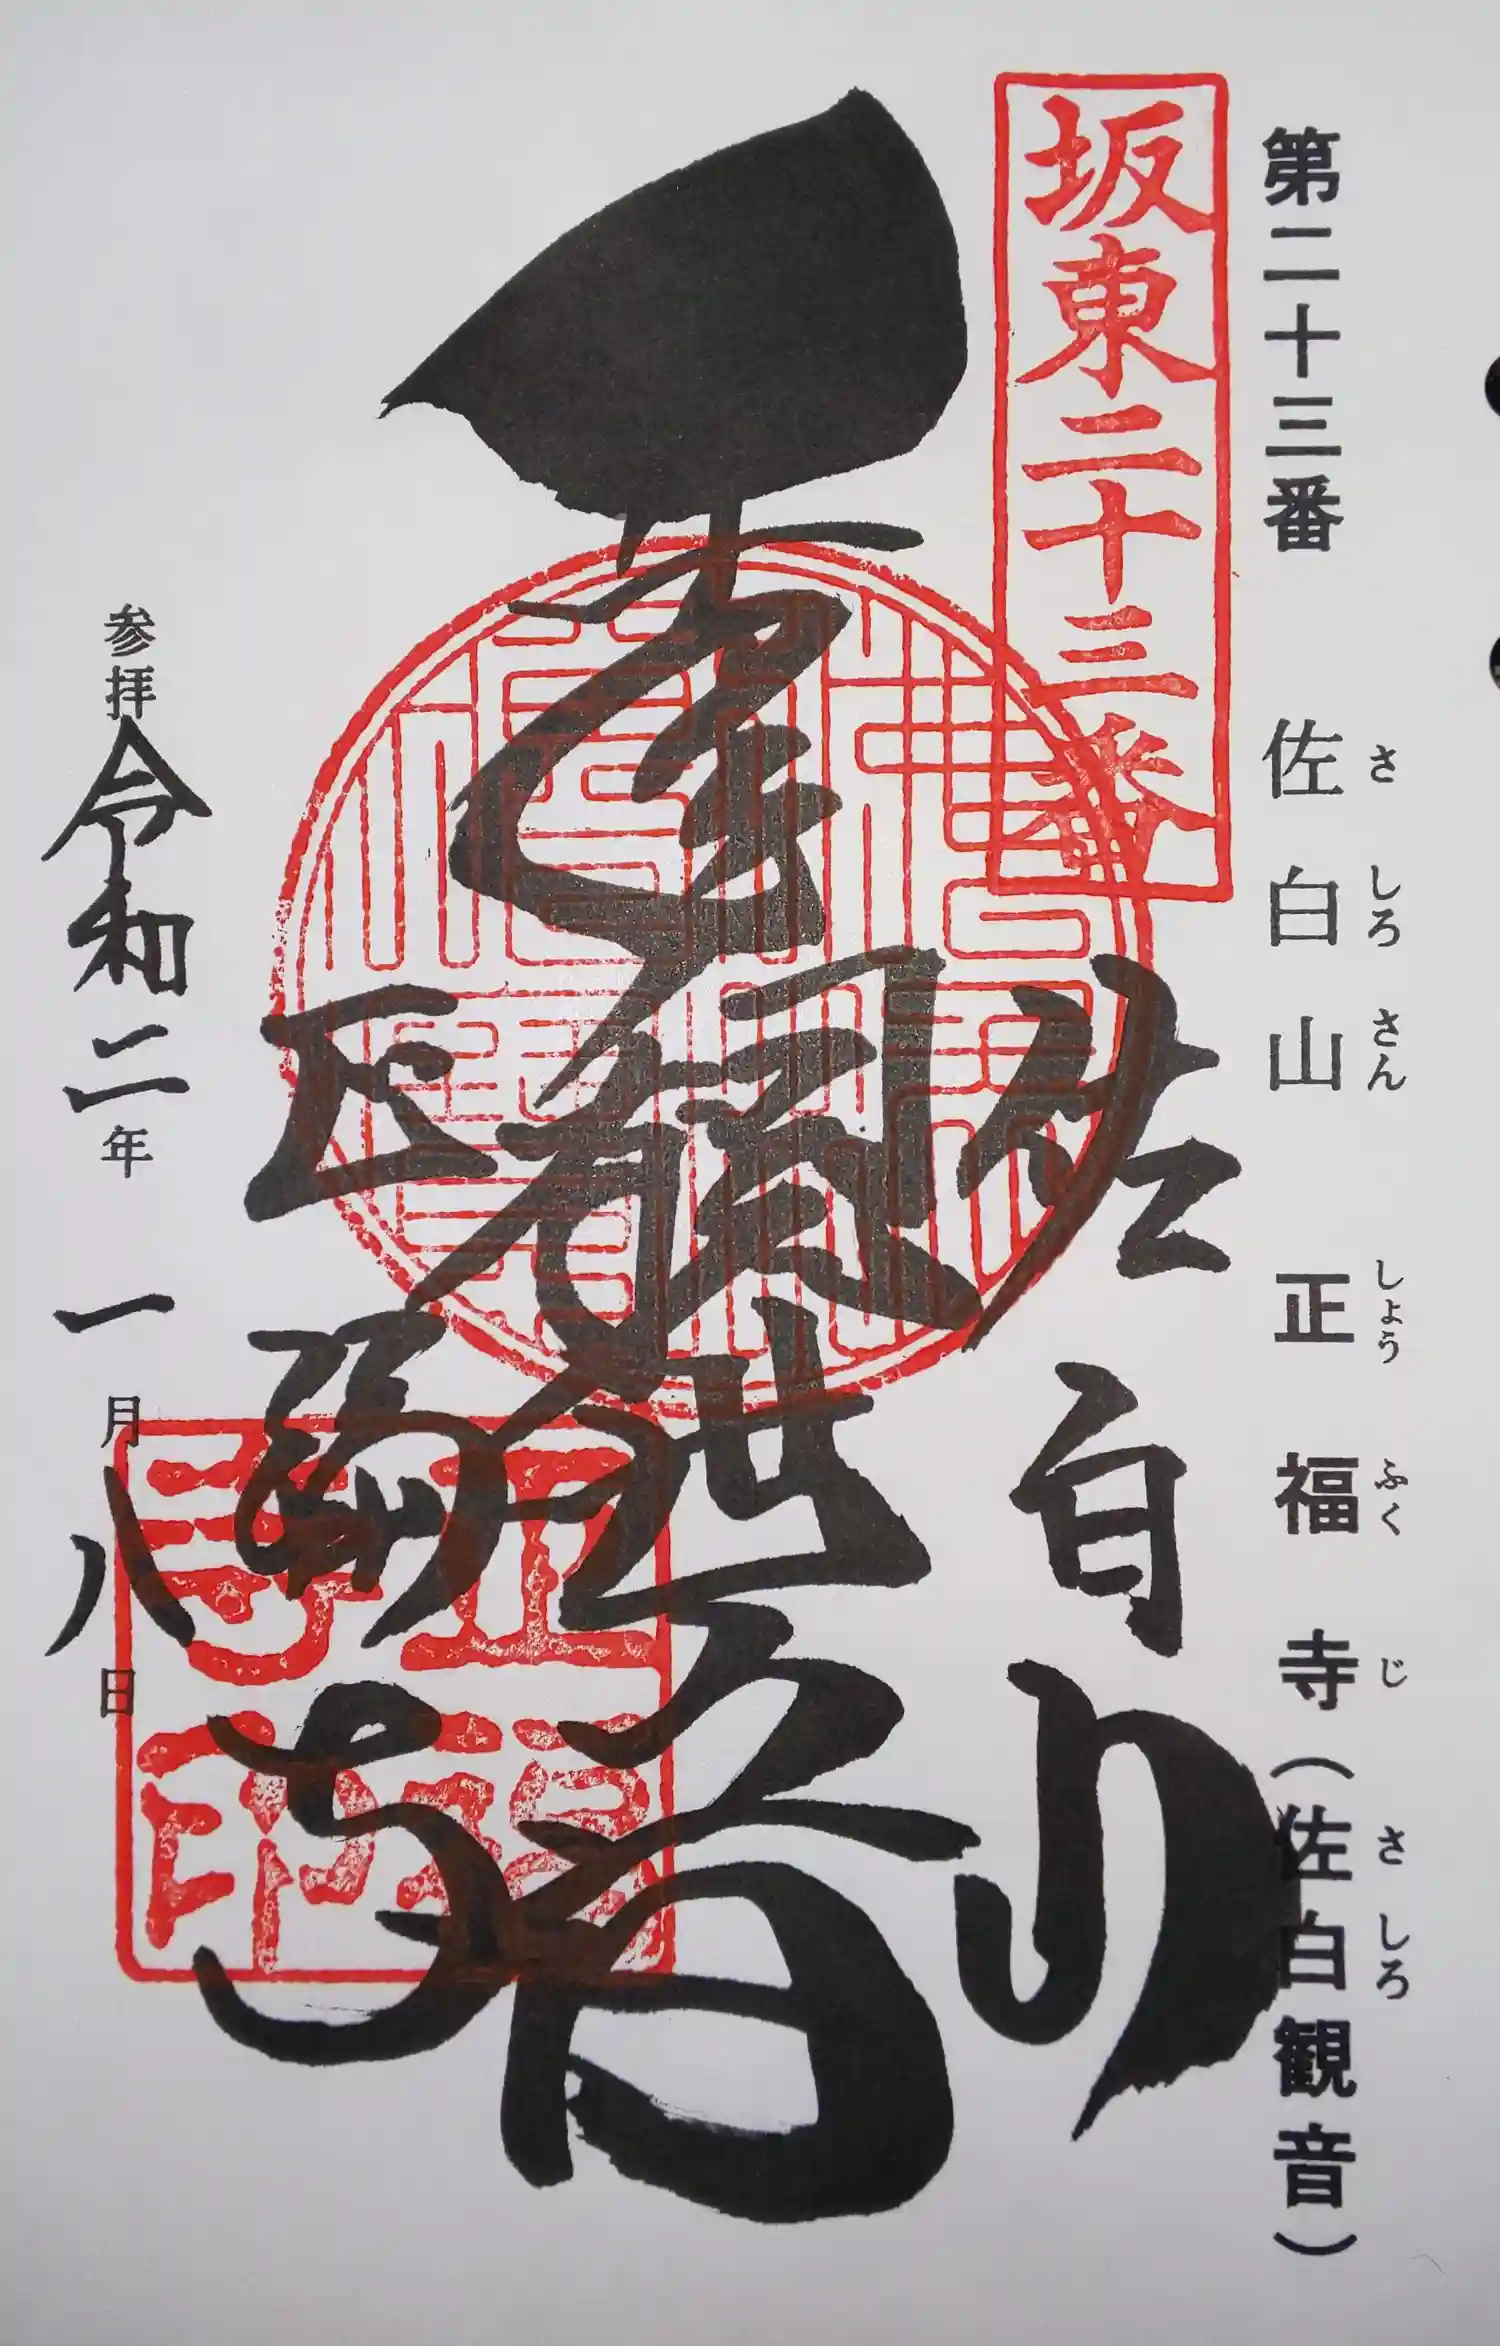 第二十三番 佐白山 正福寺（佐白観音）
さ しろ さん しょう ふく じ さ しろ
坂東二十三番
佐白山
千手
世
音
正福寺
正福寺印
参拝 令和二年 一月八日